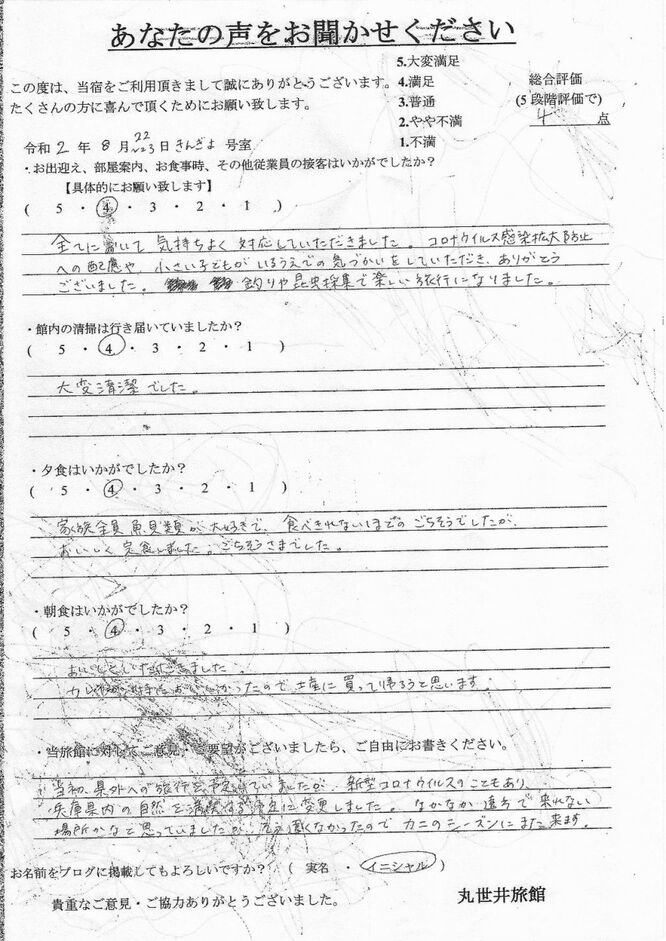 あなたの声をお聞かせください
この度は、当宿をご利用頂きまして誠にありがとうございます。
たくさんの方に喜んで頂くためにお願い致します。
5.大変満足
4.満足
3.普通
2.やや不満
1.不満
総合評価
(5段階評価で)
4 点
令和 2 年 8 月 22 23 日 きんぎょ 号室
・お出迎え、部屋案内、お食事時、その他従業員の接客はいかがでしたか?
【具体的にお願い致します】
( 5 ・ 4 ・ 3 ・ 2 ・ 1 )
全てに置いて気持ちよく対応していただきました。コロナウイルス感染拡大防止
への配慮や、小さい子どもがいるうえでの気づかいをしていただき、ありがとう
ございました。 釣りや昆虫採集で楽しい旅行になりました。
・館内の清掃は行き届いていましたか?
( 5 ・ 4 ・ 3 ・ 2 ・ 1 )
大変清潔でした。
・夕食はいかがでしたか?
( 5 ・ 4 ・ 3 ・ 2 ・ 1 )
家族全員魚貝類が大好きで、食べきれないほどのごちそうでしたが、
おいしく完食しました。ごちそうさまでした。
・朝食はいかがでしたか?
( 5 ・ 4 ・ 3 ・ 2 ・ 1 )
おいしくいただきました
おいしかったので土産に買って帰ろうと思います。
・当旅館に対してご意見・ご要望がございましたら、ご自由にお書きください。
当初、県外への旅行を予定していましたが、新型コロナウイルスのこともあり、
兵庫県内の自然を満喫する予定に変更しました。なかなか遠方で来れない
場所かなと思っていましたが、そう遠くなかったのでカニのシーズンにまた来ます。
お名前をブログに掲載してもよろしいですか? ( 実名 ・ イニシャル )
貴重なご意見・ご協力ありがとうございました。
丸世井旅館